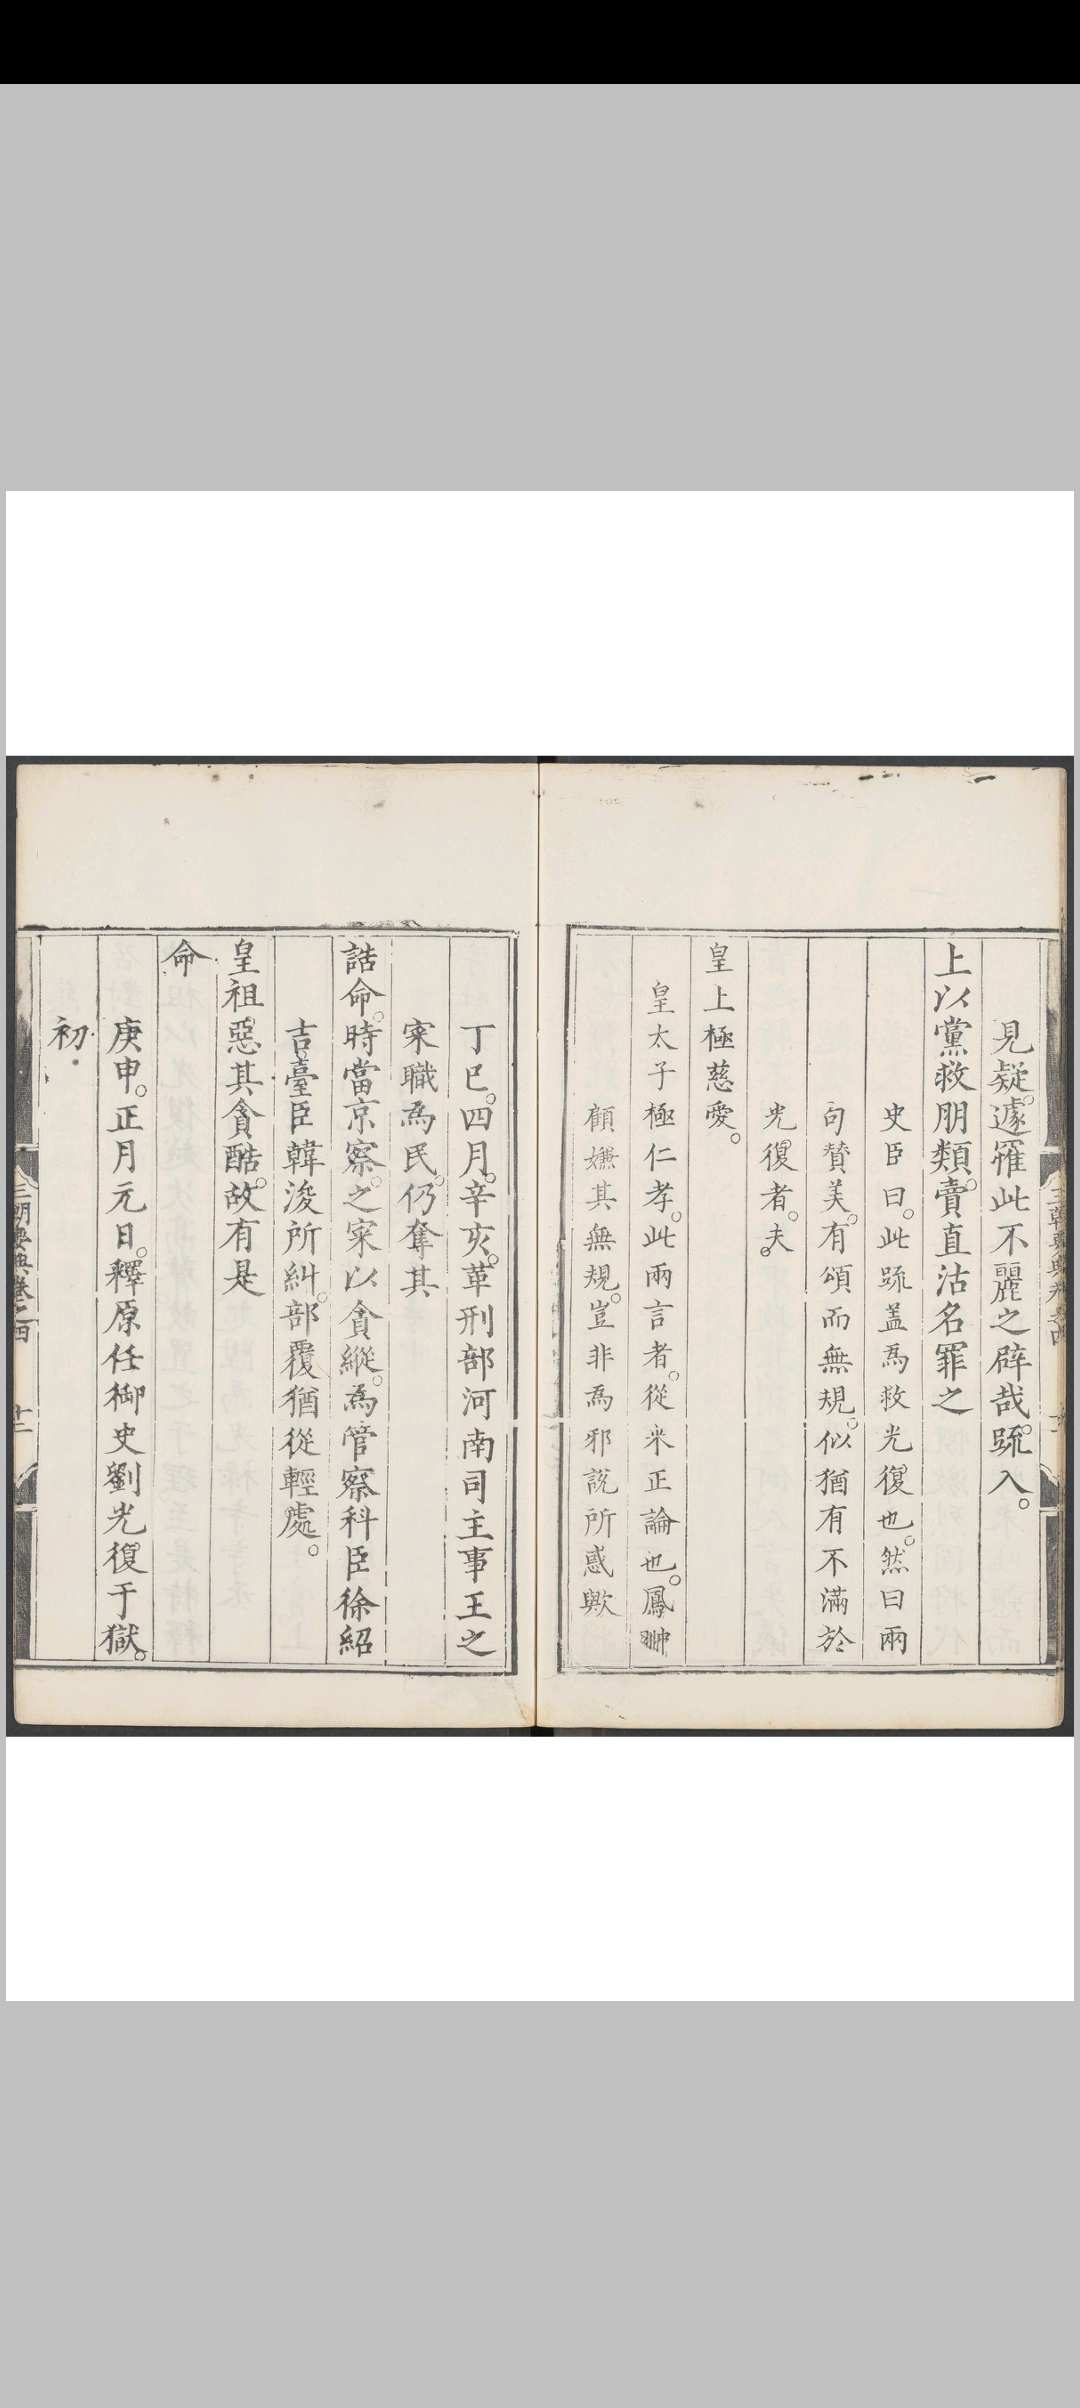 見疑遽罹此不麗之辟哉疏入。
上以黨救朋類賣直沽名罪之
史臣曰。此疏盖為救光復也。然曰兩
句贊美。有頌而無規。似猶有不滿於
光復者。夫。
皇上極慈愛。
皇太子極仁孝。此兩言者。從来正論也。鳳翀
顧嫌其無規。豈非為邪説所惑歟
丁巳。四月。辛亥。革刑部河南司主事王之
寀職為民。仍奪其
誥命。時當京察。之寀以貪縱。為管察科臣徐紹
吉臺臣韓浚所糾。部覆猶從輕處。
皇祖惡其貪酷。故有是
命
庚申。正月元日。釋原任御史劉光復于獄。
初
三朝要典卷之四 十二